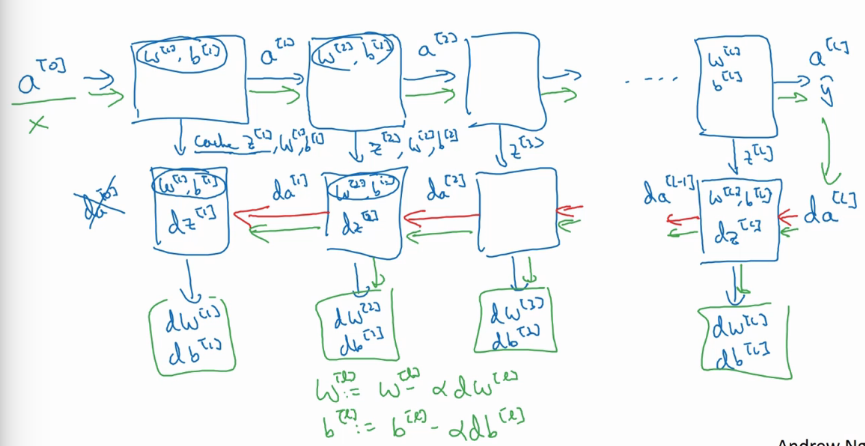 a^[0]
x
w^[1], b^[1]
a^[1]
w^[2], b^[2]
a^[2]
....
w^[L]
b^[L]
a^[L]
ŷ
cache z^[1], w^[1], b^[1]
z^[2], w^[2], b^[2]
z^[3]
z^[L]
da^[0]
w^[1], b^[1]
dz^[1]
da^[1]
w^[2], b^[2]
dz^[2]
da^[2]
da^[L-1]
w^[L], b^[L]
dz^[L]
da^[L]
dw^[1]
db^[1]
dw^[2]
db^[2]
dw^[3]
db^[3]
dw^[L]
db^[L]
w^[l] := w^[l] - αdw^[l]
b^[l] := b^[l] - αdb^[l]
Andrew